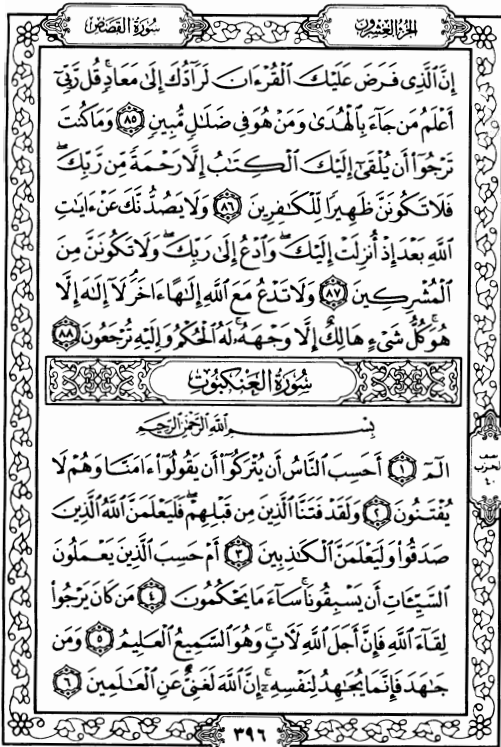 سُورَةُ القَصَصِ
الجُزءُ العِشْرُونَ
إِنَّ ٱلَّذِى فَرَضَ عَلَيْكَ ٱلْقُرْءَانَ لَرَآدُّكَ إِلَىٰ مَعَادٍ ۚ قُل رَّبِّىٓ
أَعْلَمُ مَن جَآءَ بِٱلْهُدَىٰ وَمَنْ هُوَ فِى ضَلَٰلٍ مُّبِينٍ ٨٥ وَمَا كُنتَ
تَرْجُوٓا۟ أَن يُلْقَىٰٓ إِلَيْكَ ٱلْكِتَٰبُ إِلَّا رَحْمَةً مِّن رَّبِّكَ ۖ
فَلَا تَكُونَنَّ ظَهِيرًا لِّلْكَٰفِرِينَ ٨٦ وَلَا يَصُدُّنَّكَ عَنْ ءَايَٰتِ
ٱللَّهِ بَعْدَ إِذْ أُنزِلَتْ إِلَيْكَ ۖ وَٱدْعُ إِلَىٰ رَبِّكَ ۖ وَلَا تَكُونَنَّ مِنَ
ٱلْمُشْرِكِينَ ٨٧ وَلَا تَدْعُ مَعَ ٱللَّهِ إِلَٰهًا ءَاخَرَ ۘ لَآ إِلَٰهَ إِلَّا
هُوَ ۚ كُلُّ شَىْءٍ هَالِكٌ إِلَّا وَجْهَهُۥ ۚ لَهُ ٱلْحُكْمُ وَإِلَيْهِ تُرْجَعُونَ ٨٨
سُورَةُ العَنكَبُوتِ
بِسْمِ ٱللَّهِ ٱلرَّحْمَٰنِ ٱلرَّحِيمِ
الٓمٓ ١ أَحَسِبَ ٱلنَّاسُ أَن يُتْرَكُوٓا۟ أَن يَقُولُوٓا۟ ءَامَنَّا وَهُمْ لَا
يُفْتَنُونَ ٢ وَلَقَدْ فَتَنَّا ٱلَّذِينَ مِن قَبْلِهِمْ ۖ فَلَيَعْلَمَنَّ ٱللَّهُ ٱلَّذِينَ
صَدَقُوا۟ وَلَيَعْلَمَنَّ ٱلْكَٰذِبِينَ ٣ أَمْ حَسِبَ ٱلَّذِينَ يَعْمَلُونَ
ٱلسَّيِّـَٔاتِ أَن يَسْبِقُونَا ۚ سَآءَ مَا يَحْكُمُونَ ٤ مَن كَانَ يَرْجُوا۟
لِقَآءَ ٱللَّهِ فَإِنَّ أَجَلَ ٱللَّهِ لَـَٔاتٍ ۚ وَهُوَ ٱلسَّمِيعُ ٱلْعَلِيمُ ٥ وَمَن
جَٰهَدَ فَإِنَّمَا يُجَٰهِدُ لِنَفْسِهِۦٓ ۚ إِنَّ ٱللَّهَ لَغَنِىٌّ عَنِ ٱلْعَٰلَمِينَ ٦
نصف
الحزب
٤٠
٣٩٦